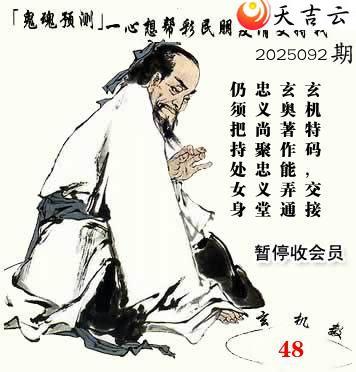 「鬼魂预测」一心想帮彩民朋
天吉云
2025092期
玄机特码，交接
玄奥著作能弄通
忠义尚聚忠义堂
仍须把持处女身
暂停收会员
玄机
48